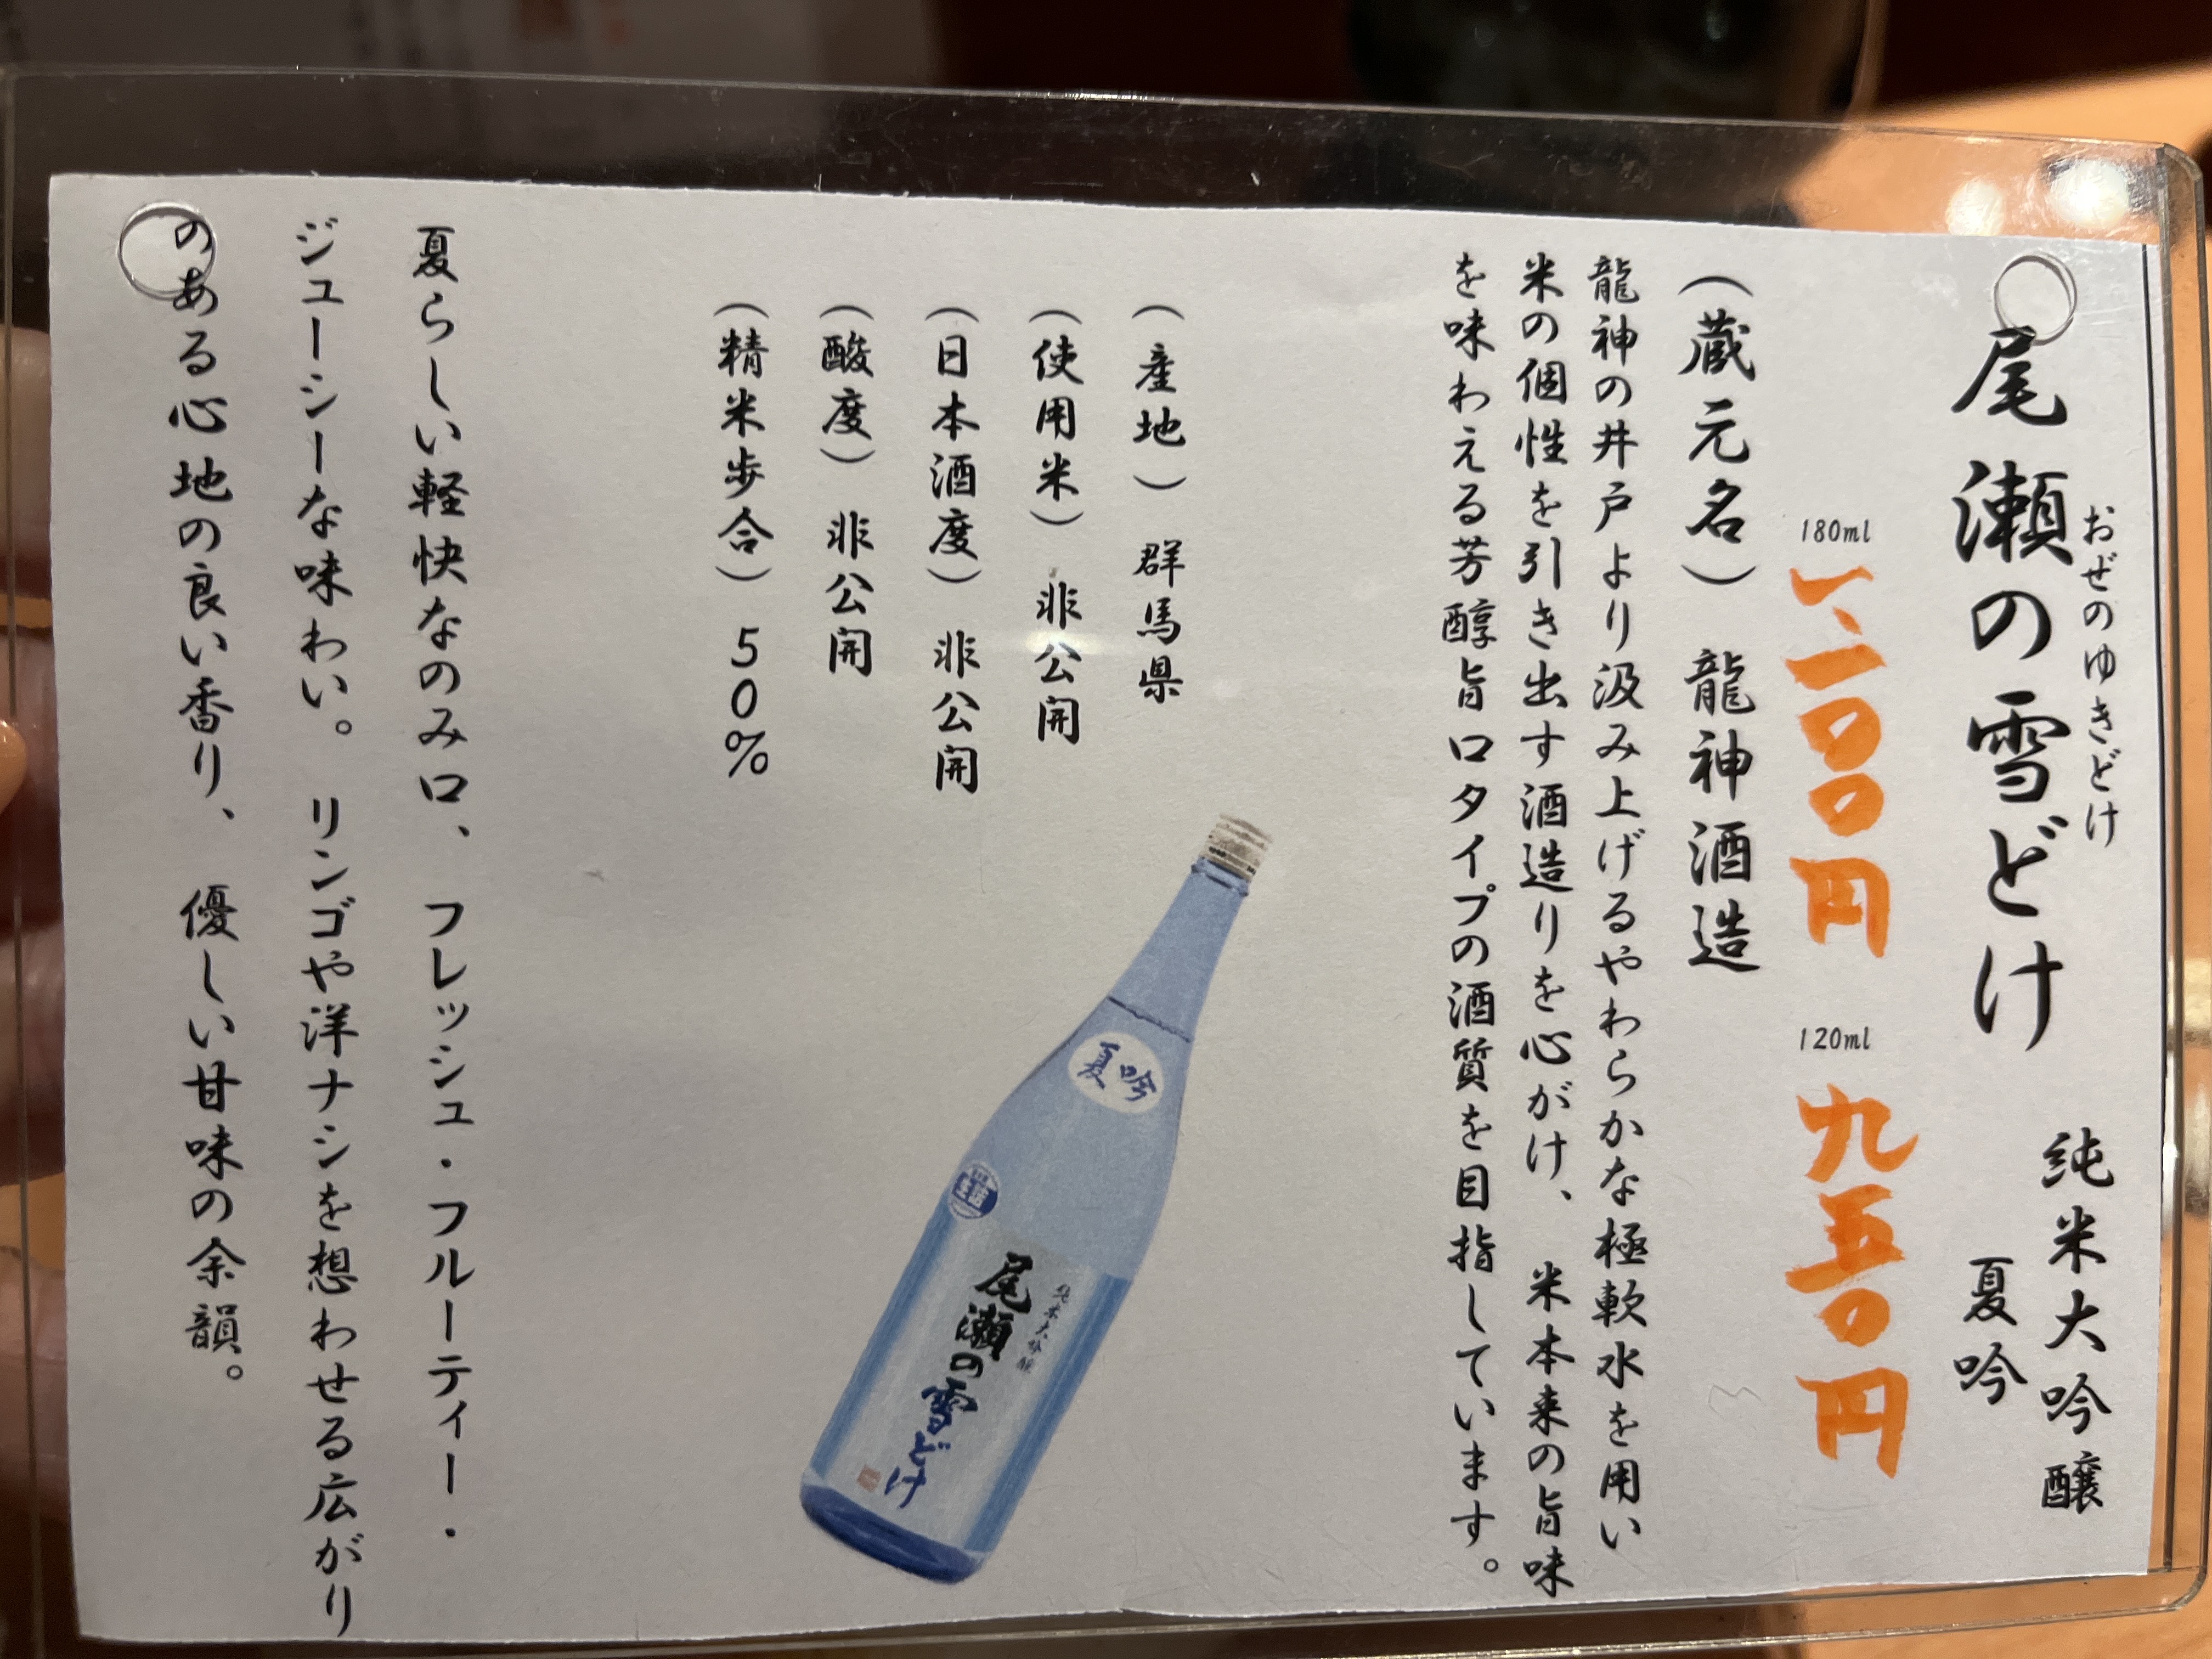 おぜのゆきどけ
尾瀬の雪どけ
純米大吟醸
夏吟
180ml
一、二〇〇円
120ml
九五〇円
（蔵元名） 龍神酒造
龍神の井戸より汲み上げるやわらかな極軟水を用い
米の個性を引き出す酒造りを心がけ、 米本来の旨味
を味わえる芳醇旨口タイプの酒質を目指しています。
（産地） 群馬県
（使用米） 非公開
（日本酒度） 非公開
（酸度） 非公開
（精米歩合） 50%
夏吟
純米大吟醸
尾瀬の雪どけ
夏らしい軽快なのみ口、 フレッシュ・フルーティー・
ジューシーな味わい。 リンゴや洋ナシを想わせる広がり
のある心地の良い香り、 優しい甘味の余韻。